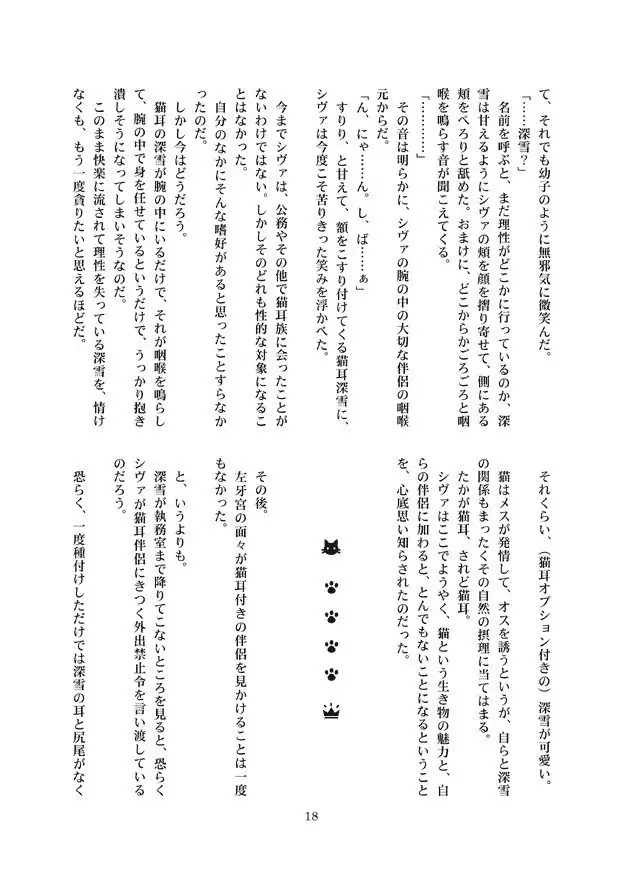 て、それでも幼子のように無邪気に微笑んだ。
「……深雪？」
名前を呼ぶと、まだ理性がどこかに行っているのか、深
雪は甘えるようにシヴァの頬を顔を摺り寄せて、側にある
頬をぺろりと舐めた。おまけに、どこからかごろごろと咽
喉を鳴らす音が聞こえてくる。
「…………」
その音は明らかに、シヴァの腕の中の大切な伴侶の咽喉
元からだ。
「ん、にゃ……ん。し、ば……ぁ」
すりり、と甘えて、額をこすり付けてくる猫耳深雪に、
シヴァは今度こそ苦りきった笑みを浮かべた。
今までシヴァは、公務やその他で猫耳族に会ったことが
ないわけではない。しかしそのどれも性的な対象になるこ
とはなかった。
自分のなかにそんな嗜好があると思ったことすらなか
ったのだ。
しかし今はどうだろう。
猫耳の深雪が腕の中にいるだけで、それが咽喉を鳴らし
て、腕の中で身を任せているというだけで、うっかり抱き
潰しそうになってしまいそうなのだ。
このまま快楽に流されて理性を失っている深雪を、情け
なくも、もう一度貪りたいと思えるほどだ。
それくらい、（猫耳オプション付きの）深雪が可愛い。
猫はメスが発情して、オスを誘うというが、自らと深雪
の関係もまったくその自然の摂理に当てはまる。
たかが猫耳、されど猫耳。
シヴァはここでようやく、猫という生き物の魅力と、自
らの伴侶に加わると、とんでもないことになるということ
を、心底思い知らされたのだった。
その後。
左牙宮の面々が猫耳付きの伴侶を見かけることは一度
もなかった。
と、いうよりも。
深雪が執務室まで降りてこないところを見ると、恐らく
シヴァが猫耳伴侶にきつく外出禁止令を言い渡している
のだろう。
恐らく、一度種付けしただけでは深雪の耳と尻尾がなく
18